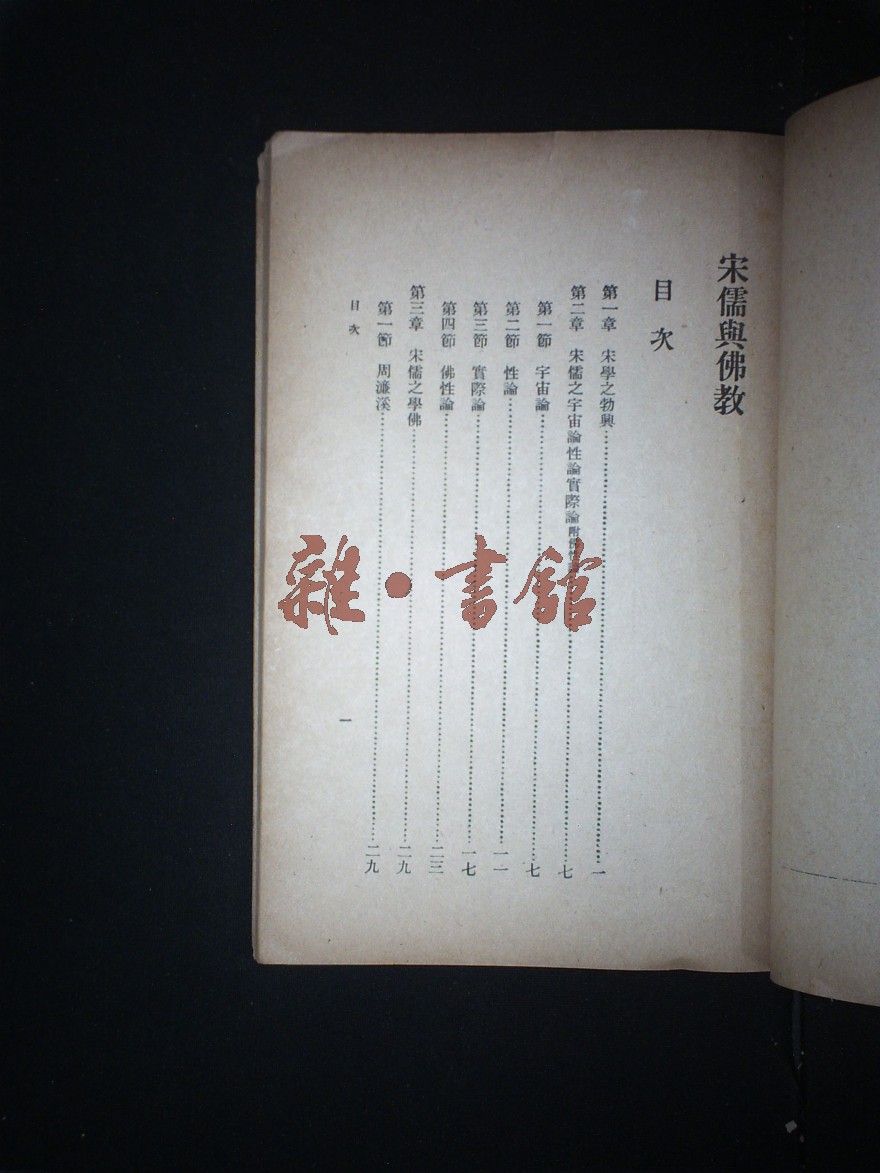 宋儒與佛教
目次
第一章 宋學之勃興……一
第二章 宋儒之宇宙論性論實際論附佛性……七
第一節 宇宙論……七
第二節 性論……一一
第三節 實際論……一七
第四節 佛性論……二三
第三章 宋儒之學佛……二九
第一節 周濂溪……二九
目次
一
雜·書館